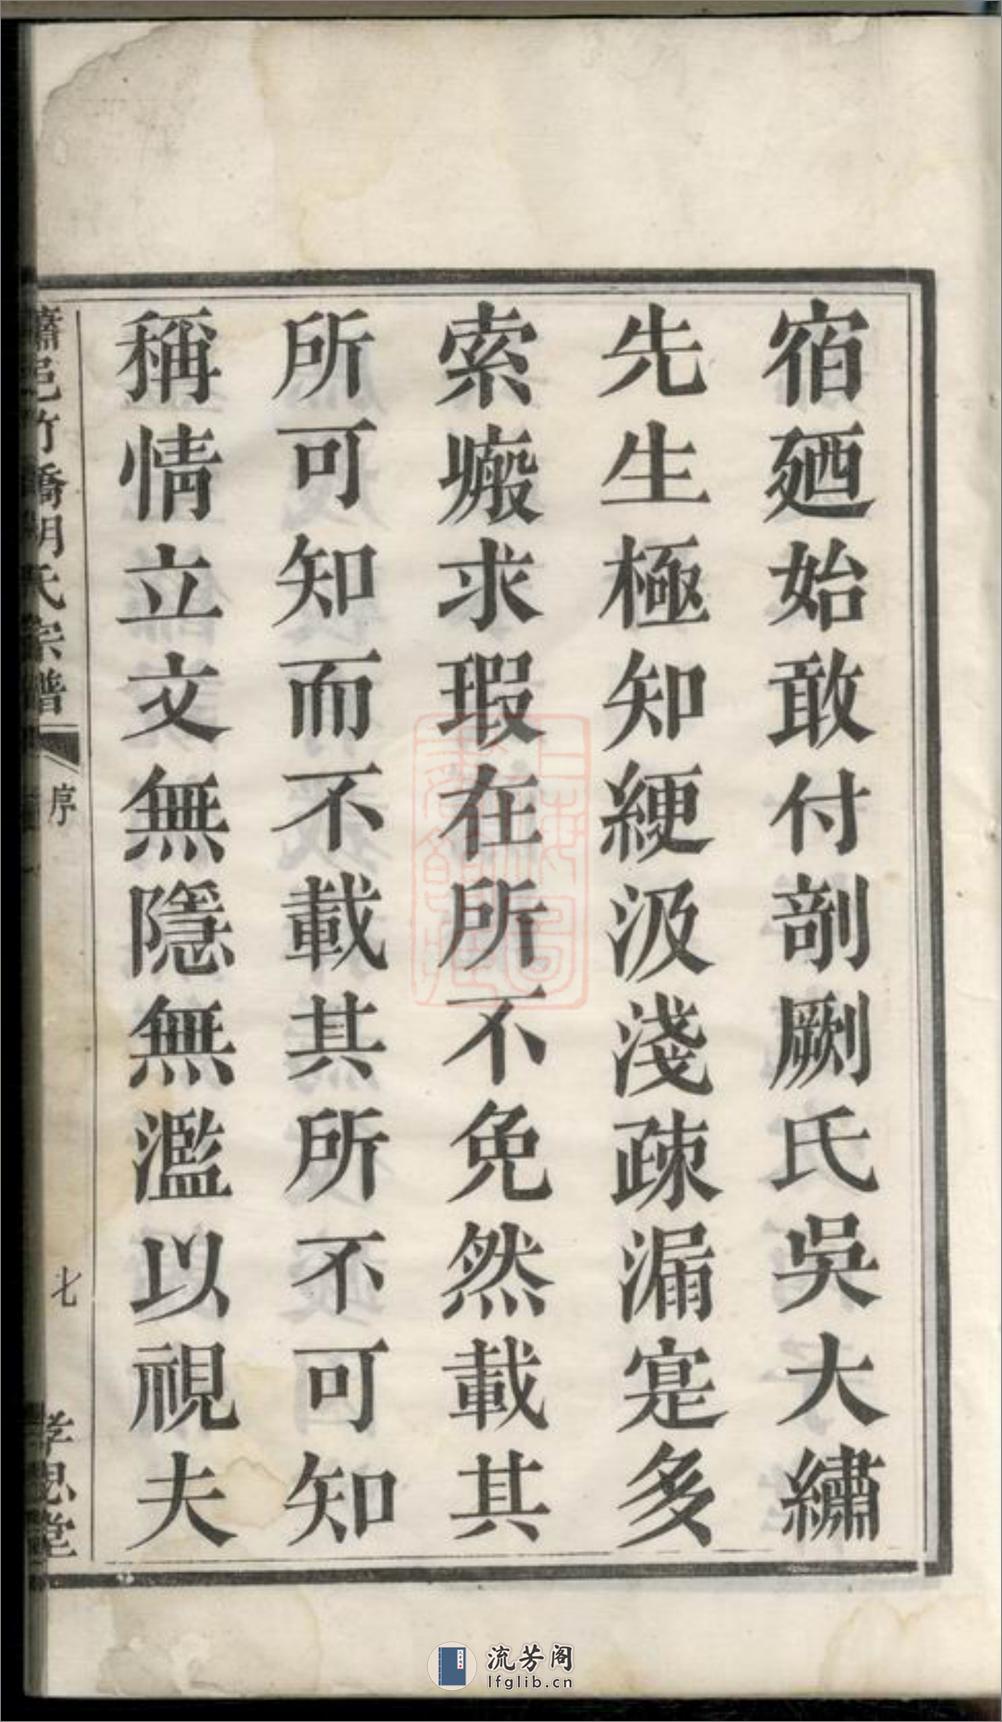 宿廼始敢付剞劂氏吳大繡
先生極知綆汲淺疎漏寔多
索瘢求瑕在所不免然載其
所可知而不載其所不可知
稱情立文無隱無濫以視夫
蕭邑竹橋胡氏宗譜
序
七
孝思堂
流芳阁
lfglib.cn